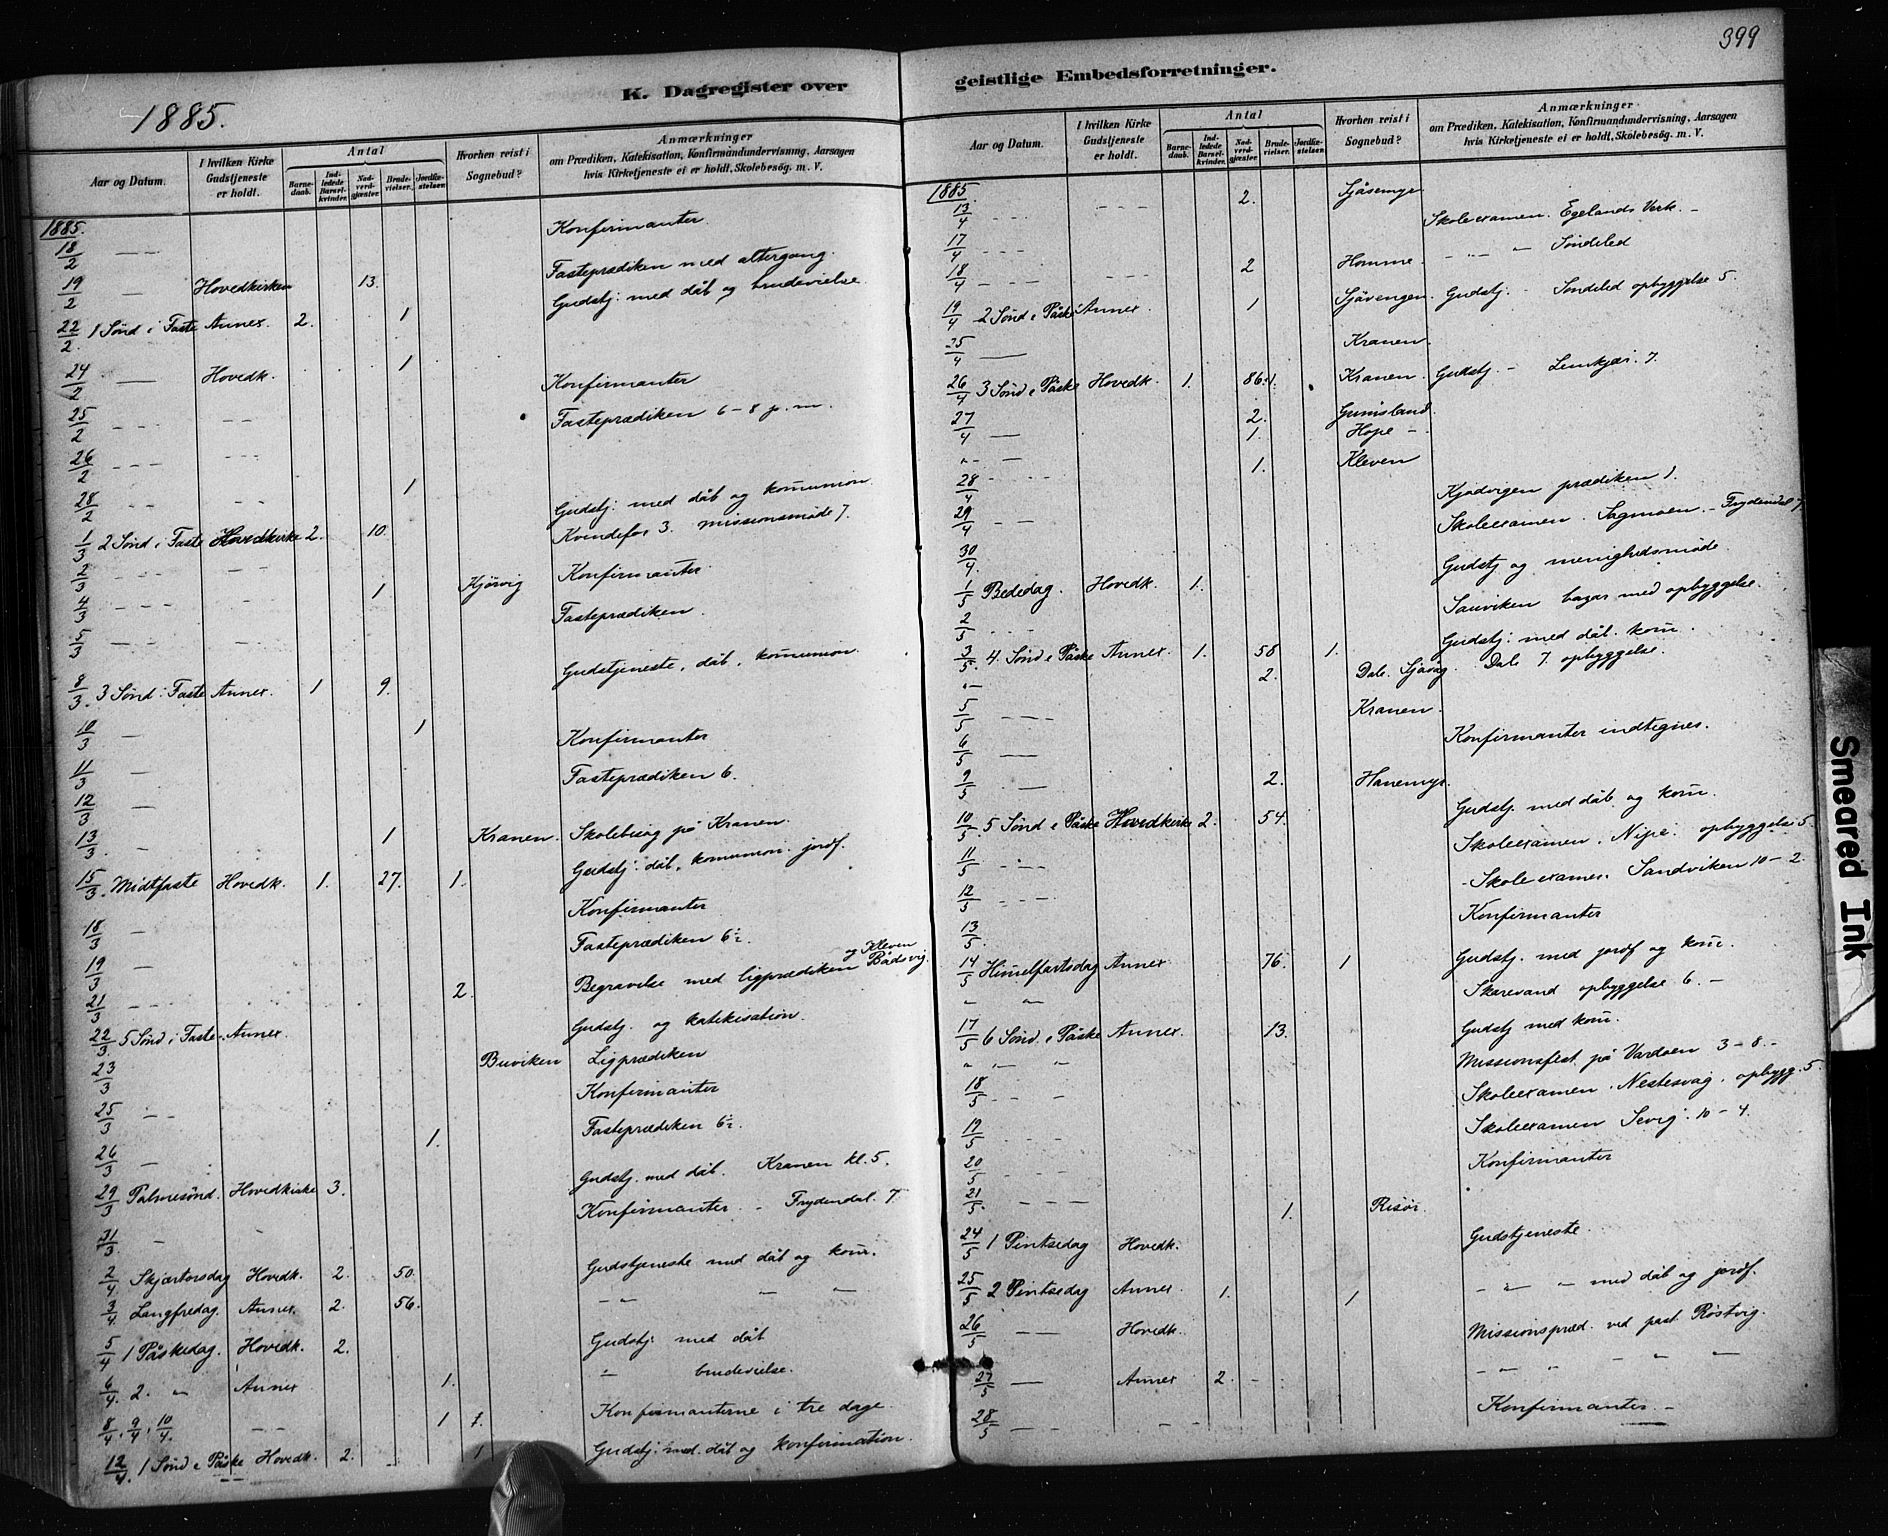 399
K. Dagregister over
geistlige Embedsforretninger.
1885.
Aar og Datum.
I hvilken Kirke Gudstjeneste er holdt.
Antal
Barnedaab.
Indledede Barselkvinder.
Nadverdgjæster.
Brudevielser.
Jordfæstelser.
Hvorhen reist i Sognebud?
Anmærkninger
om Prædiken, Katekisation, Konfirmandundervisning, Aarsagen
hvis Kirketjeneste ei er holdt, Skolebesøg. m. V.
1885.
18/2 — Konfirmanter.
19/2 — Hovedkirken 13. Fasteprædiken med altergang.
22/2 1 Sønd i Faste Annex. 2. 1 Gudstj. med dåb og brudevielse.
24/2 — Hovedk. 1
25/2 - - - Konfirmanter
26/2 - - - Fasteprædiken 6-8 p.m.
28/2 - - 1
1/3 2 Sønd i Faste Hovedkirke 2. 10. Gudstj. med dåb og komunion
Kvindefor 3. missionsmøde 7.
2/3 - - -
4/3 - - - 1 Kjørvig Konfirmanter.
5/3 — Fasteprædiken.
8/3. 3 Sønd i Faste Annex. 1 9. Gudstjeneste, dåb, komunion.
10/3 — 1
11/3 — Konfirmanter
12/3 — Fasteprædiken 6.
13/3. — 1 Kranen. Skolebesøg på Kranen.
15/3. Midtfaste Hovedk. 1. 27. 1. Gudstj. dåb, komunion. jordf.
18/3 — Konfirmanter
19/3 — Fasteprædiken 6½.
21/3. 2. Begravelse med ligprædiken Bådsvig.
og Kleven
22/3 5 Sønd i Faste Annex. Gudstj. og katekisation.
23/3 Buviken Ligprædiken
25/3 — Konfirmanter
26/3 — 1. Fasteprædiken 6½.
29/3 Palmesønd. Hovedkirke 3. Gudstj. med dåb. Kranen kl. 5.
31/3. - Konfirmanter - Frydendal. 7
2/4. Skjærtorsdag Hovedk. 2. 50. Gudstjeneste med dåb og kom.
3/4. Langfredag. Annex. 2. 56. — „ — „
5/4 1 Påskedag. Hovedk. 2. Gudstj. med dåb
6/4. 2. „ Annex 1. — brudevielse.
8/4. 9/4. 10/4. 1 Konfirmanterne i tre dage
12/4. 1 Sønd e Påske Hovedk. 2. 1 Gudstj. med dåb og konfirmation.
Aar og Datum.
I hvilken Kirke Gudstjeneste er holdt.
Antal
Barnedaab.
Indledede Barselkvinder.
Nadverdgjæster.
Brudevielser.
Jordfæstelser.
Hvorhen reist i Sognebud?
Anmærkninger
om Prædiken, Katekisation, Konfirmandundervisning, Aarsagen
hvis Kirketjeneste ei er holdt, Skolebesøg. m. V.
1885.
13/4 - - - 2. Sjåsemyr
17/4 - - - Skoleexamen. Egelands Verk. -
18/4 - - - 2 Homme. - „ - Søndeled
19/4 2 Sønd e Påske Annex. 1 Sjåvengen. Gudstj. - Søndeled opbyggelse 5.
25/4 — Kranen.
26/4 3 Sønd e Påske Hovedk. 1. 86. 1. Kranen. Gudstj. - Lemkjær. 7.
27/4 — 2. Gunisland.
1. Hope -
„ - — 1. Kleven
28/4 Kjødvigen prædiken 1.
29/4 - - Skoleexamen. Sagmoen. - Frydendal 7
30/4.
1/5 Bededag. Hovedk. 1. Gudstj og menighedsmøde.
2/5 . . . Sauviken bazar med opbyggelse.
3/5. 4. Sønd e Påske Annex. 1. 58. 1. Gudstj. med dåb. kom.
„ - 2. Dale. Sjåvåg. Dale 7. opbyggelse.
5/5 - - - Kranen.
6/5 — Konfirmanter indtegnes.
9/5 — 2. Hanemyr.
10/5. 5 Sønd e Påske Hovedkirke 2. 54. Gudstj. med dåb og kom.
11/5 Skoleexamen. Nipe. opbyggelse 5.
12/5 - Skoleexamen. Sandviken 10-2.
13/5. Konfirmanter
14/5 Himelfartsdag Annex 76. 1 Gudstj. med jordf og kom.
„ „ Skarevand opbyggelse 6. -
17/5 6 Sønd. e Påske Annex. 13. Gudstj med kom.
„ „ „ Missionsfest på Vardøen 3-8. -
18/5 - - - Skoleexamen. Nestesvåg. opbygg. 5.
19/5 Skoleexamen Sevig. 10-4.
20/5 Konfirmanter
21/5. - - - 1. Risør.
24/5 1 Pintsedag Hovedk. Gudstjeneste.
25/5 2 Pintsedag Annex. 1. 1 - „ - med dåb og jordf.
26/5 — Hovedk. Missionspræd. ved past. Röstvig.
27/5 — Annex 2. - „ „ - „ „
28/5 — - - Konfirmanter. -
Smeared Ink